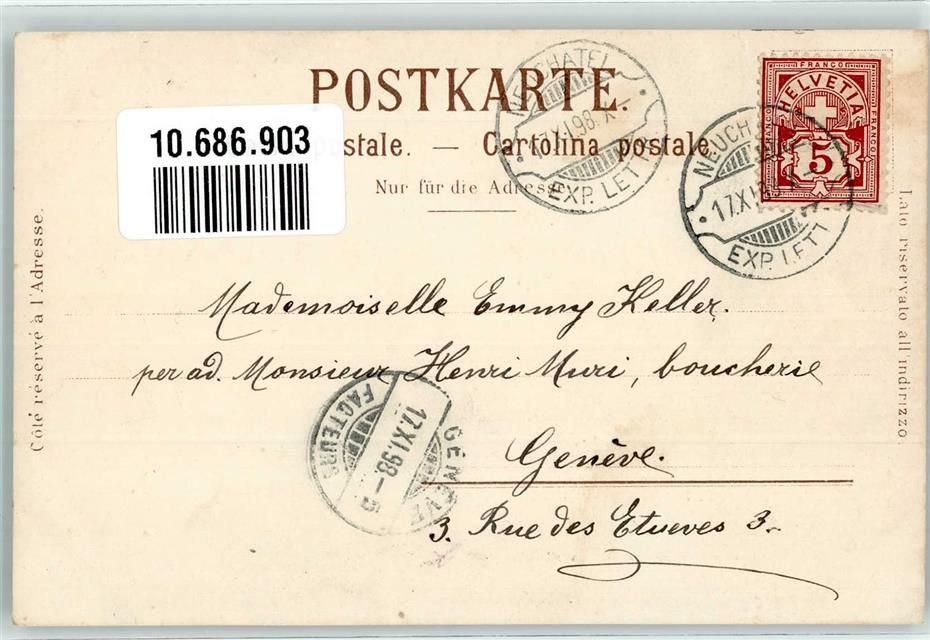 POSTKARTE.
10.686.903
postale. — Cartolina postale.
Nur für die Adresse.
NEUCHATEL
17.XI.98.X
EXP. LETT.
FRANCO
HELVETIA
FRANCO
FRANCO
5
NEUCHATEL
17.XI.98
EXP. LETT.
Côté réservé à l'Adresse.
Lato riservato all'indirizzo.
Mademoiselle Emmy Keller.
per ad. Monsieur Henri Muri, boucherie
Genève.
3. Rue des Etuves 3.
GENÈVE
17.XI.98-5
FACTEURS